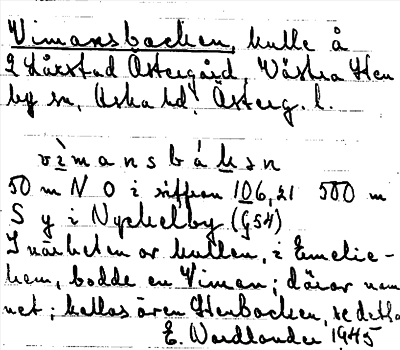 Vimansbacken, kulle å
2 Hårstad Östergård, Västra Sten
by sn, Aska hd, Österg. l.
vìmansbák​ən
50 m N O i siffran 106,21 500 m
S y i Nyckelby (G54)
I närheten av kullen, i Emelie-
hem, bodde en Viman; därav nam
net; kallas även Stenbacken, se detta
E. Nordlander 1945